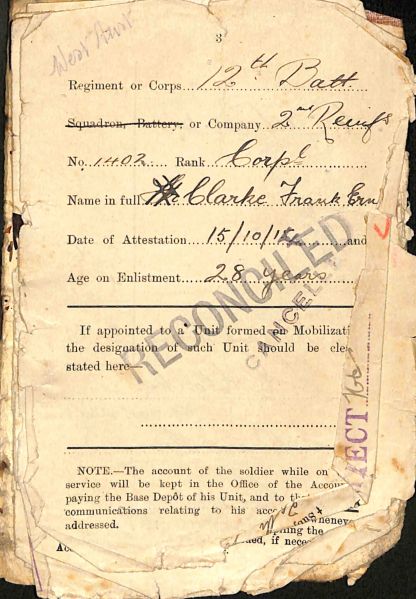 West Aust
3
Regiment or Corps 12th Batt
Squadron, Battery, or Company 2nd Reinfs
No. 1402 Rank Corpl
Name in full Clarke Frank Ern
Date of Attestation 15/10/14 and
Age on Enlistment 28 years
RECONCILED
CANCEL
If appointed to a Unit formed on Mobilizati
the designation of such Unit should be cle
stated here—
JECT
NOTE.—The account of the soldier while on
service will be kept in the Office of the Accou
paying the Base Depôt of his Unit, and to th
communications relating to his acco
addressed.
eneve
ing the
ed, if nece